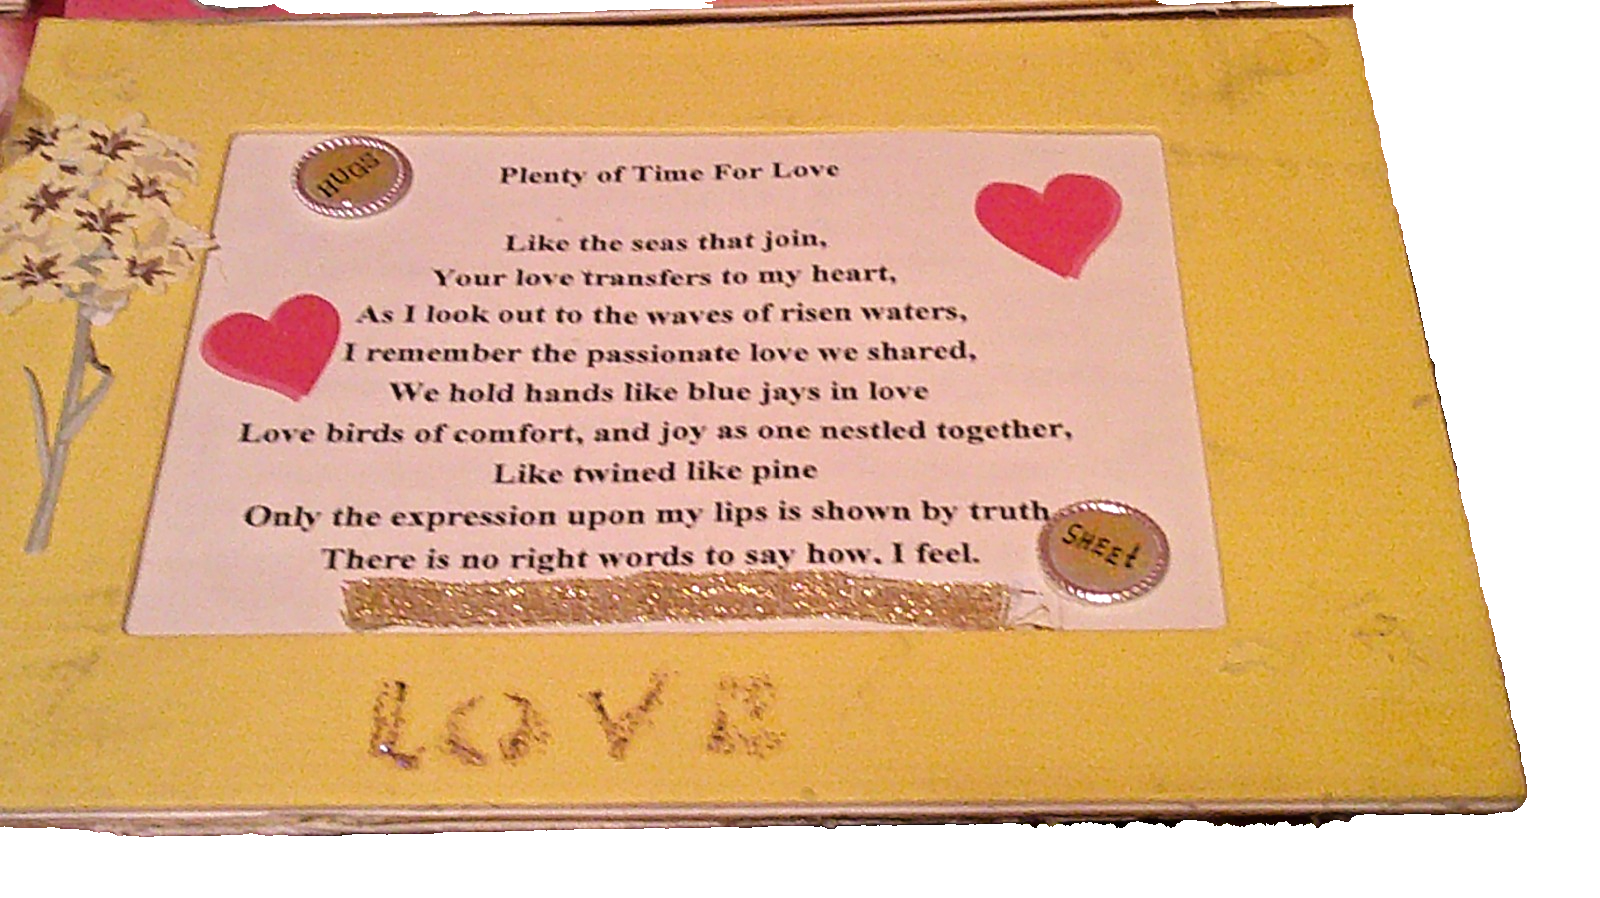 HUGS
Plenty of Time For Love
Like the seas that join,
Your love transfers to my heart,
As I look out to the waves of risen waters,
I remember the passionate love we shared,
We hold hands like blue jays in love
Love birds of comfort, and joy as one nestled together,
Like twined like pine
Only the expression upon my lips is shown by truth
There is no right words to say how. I feel.
SWEEt
LOVE